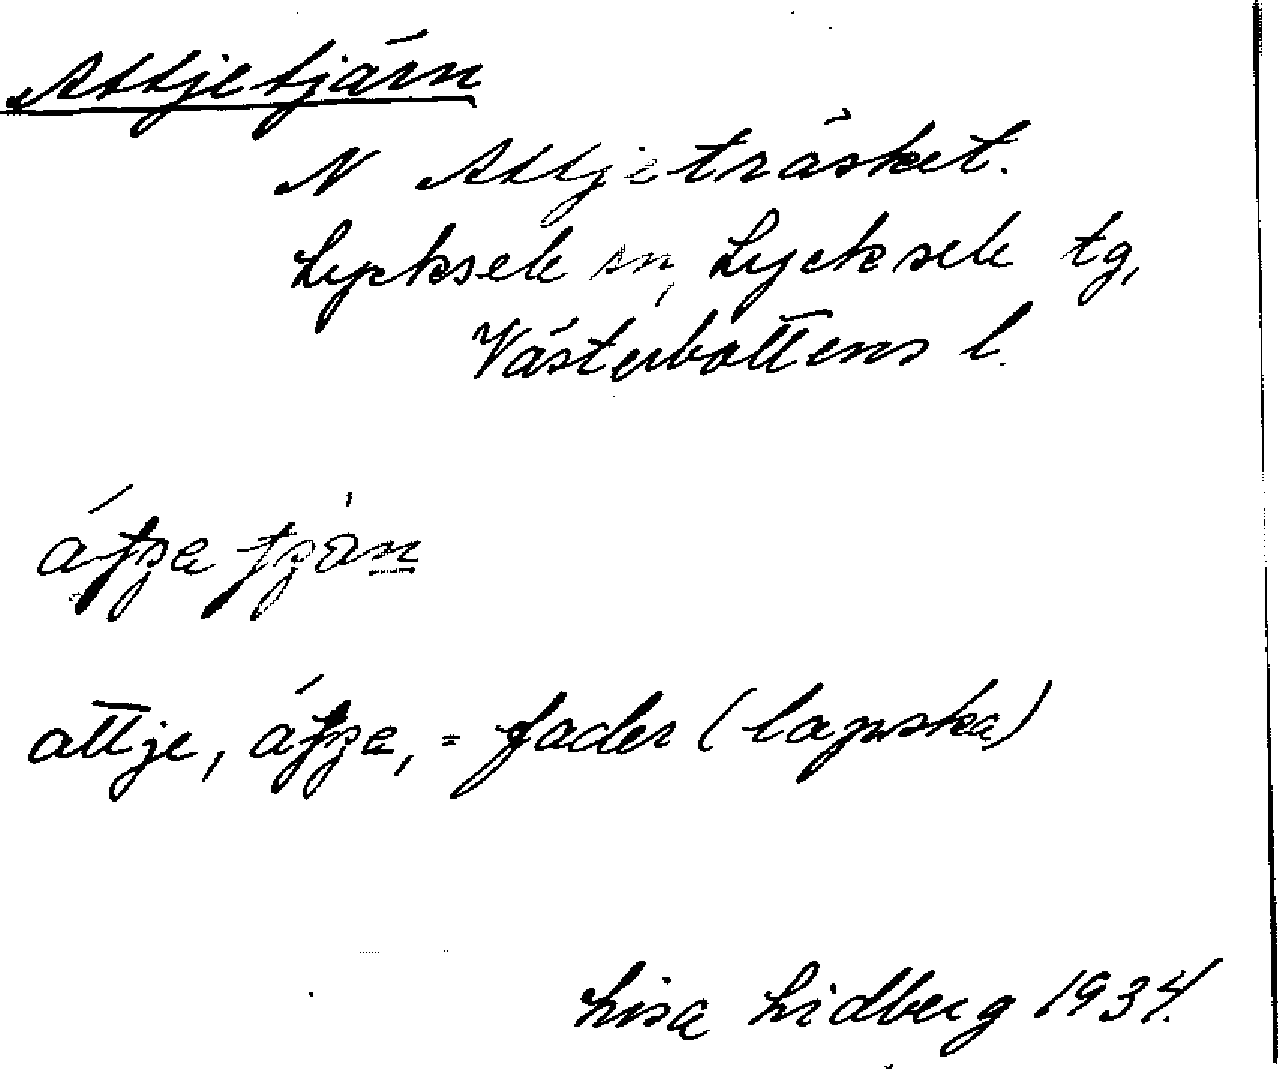 Attjetjärn
N Attjeträsket.
Lycksele sn, Lycksele tg,
Västerbottens l.
attje, = fader (lapska)
Lisa Lidberg 1934.